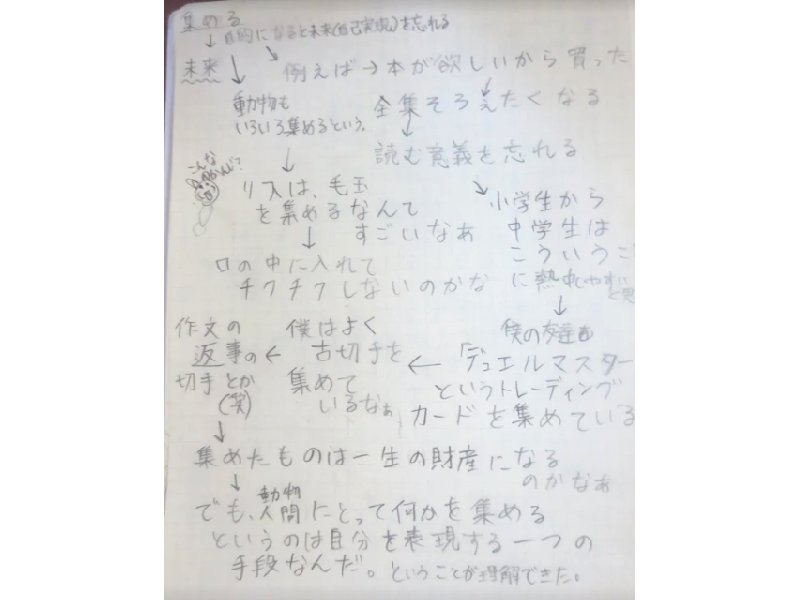 集める
↓目的になると未来(自己実現)を忘れる
未来
例えば→本が欲しいから買った
動物も
いろいろ集めるという。
全集そろえたくなる
読む意義を忘れる
こんな
リスは、毛玉
を集めるなんて
すごいなぁ
小学生から
中学生は
こういうこ
に熱中しやすい
と思
口の中に入れて
チクチクしないのかな
僕の友達も
デュエルマスター
というトレーディング
カードを集めている
僕はよく
古切手を
集めて
いるなぁ
作文の
返事の
切手とか
(笑)
集めたものは一生の財産になる
のかなぁ
動物
でも、人間にとって何かを集める
というのは自分を表現する一つの
手段なんだ。ということが理解できた。